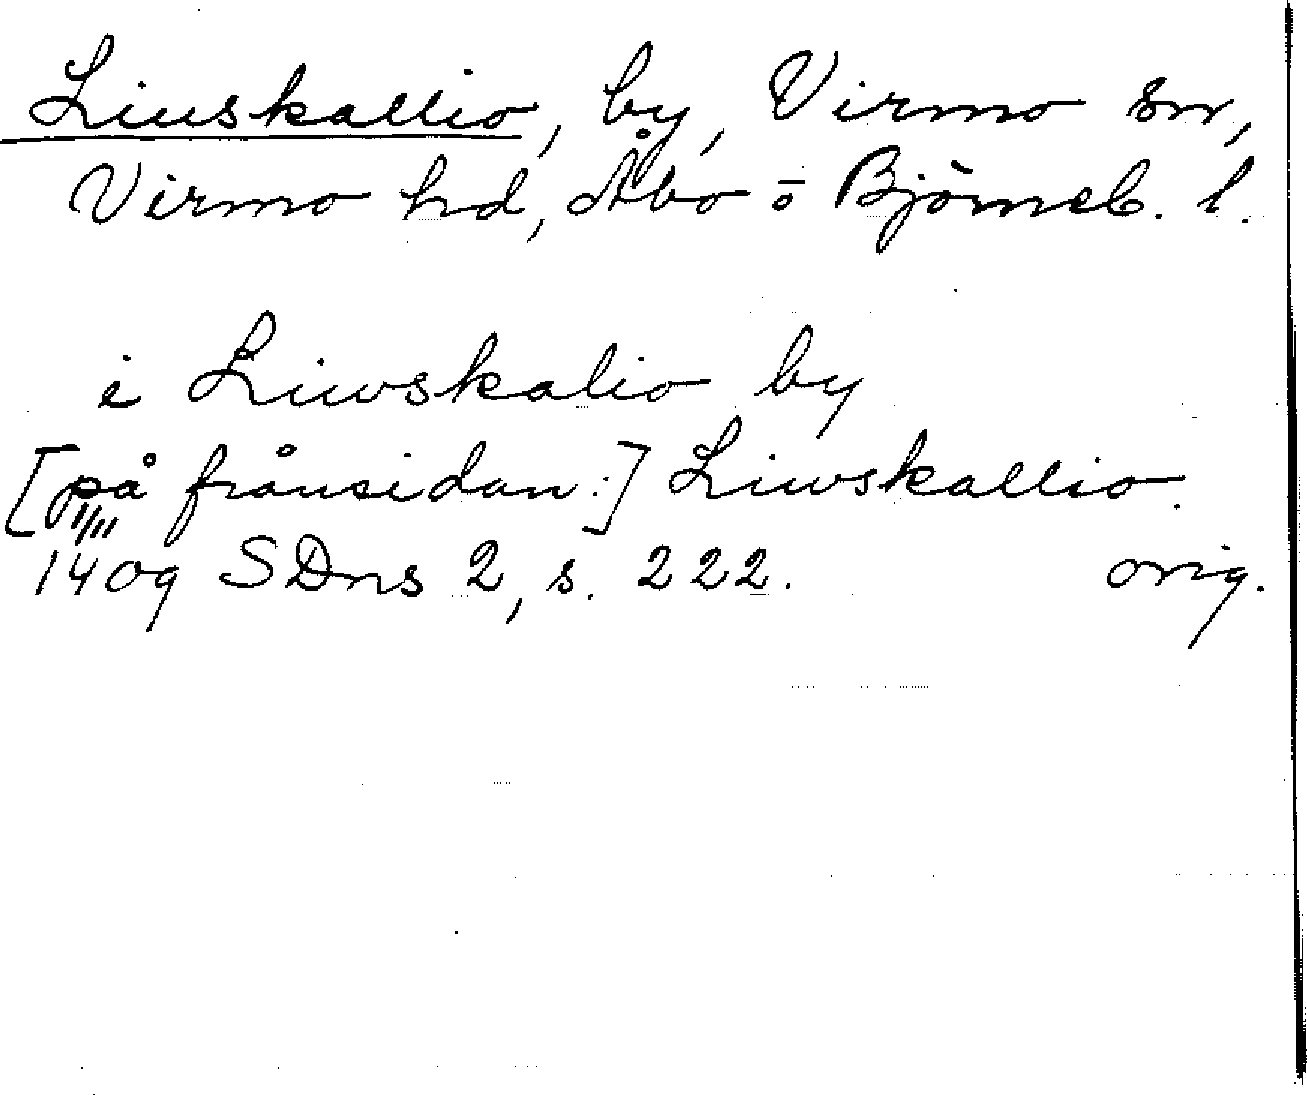 Liuskallio, by, Virmo sn,
Virmo hd, Åbo o Björneb. l.
i Liwskalio by
[på frånsidan:] Liwskallio.
1/11
1409 SDns 2, s. 222. orig.